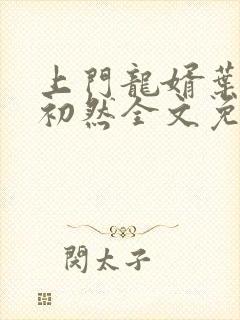 上門龍婿葉
初然全文免
閔太子